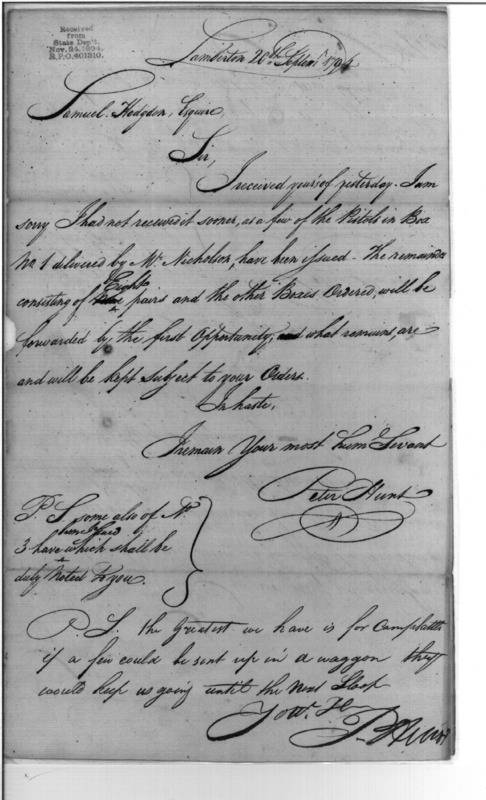 Received
from
State Dep't.
Nov. 24, 1894.
R.P.O. 401310.
Lamberton 20th Septemr 1794
Samuel Hodgdon, Esquire,
Sir,
I received your's of yesterday. I am
sorry I had not received it sooner, as a few of the Pistols in Box
No 1 delivered by Mr Nicholson, have been issued. The remainder
Eight
consisting of pairs and the other Boxes Ordered, will be
forwarded by the first Opportunity, and what remains, are
and will be kept Subject to your Orders.
In haste,
I remain Your most Huml Servant
Peter Hunt
P. S some also of No
been Issued
3 have which shall be
duly Noted to you.
P. S. the Greatest we have is for Campkettles
if a few could be sent up in a waggon they
would keep us going until the next Sloop
Yours
P Hunt